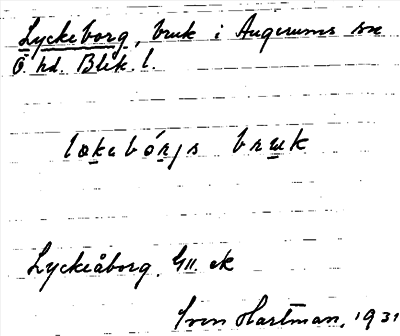 Lyckeborg, bruk i Augerums sn
Ö. hd. Blek. l.
lækebórjs bruk
Lyckeåborg. GII. ek
Sven Hartman, 1931